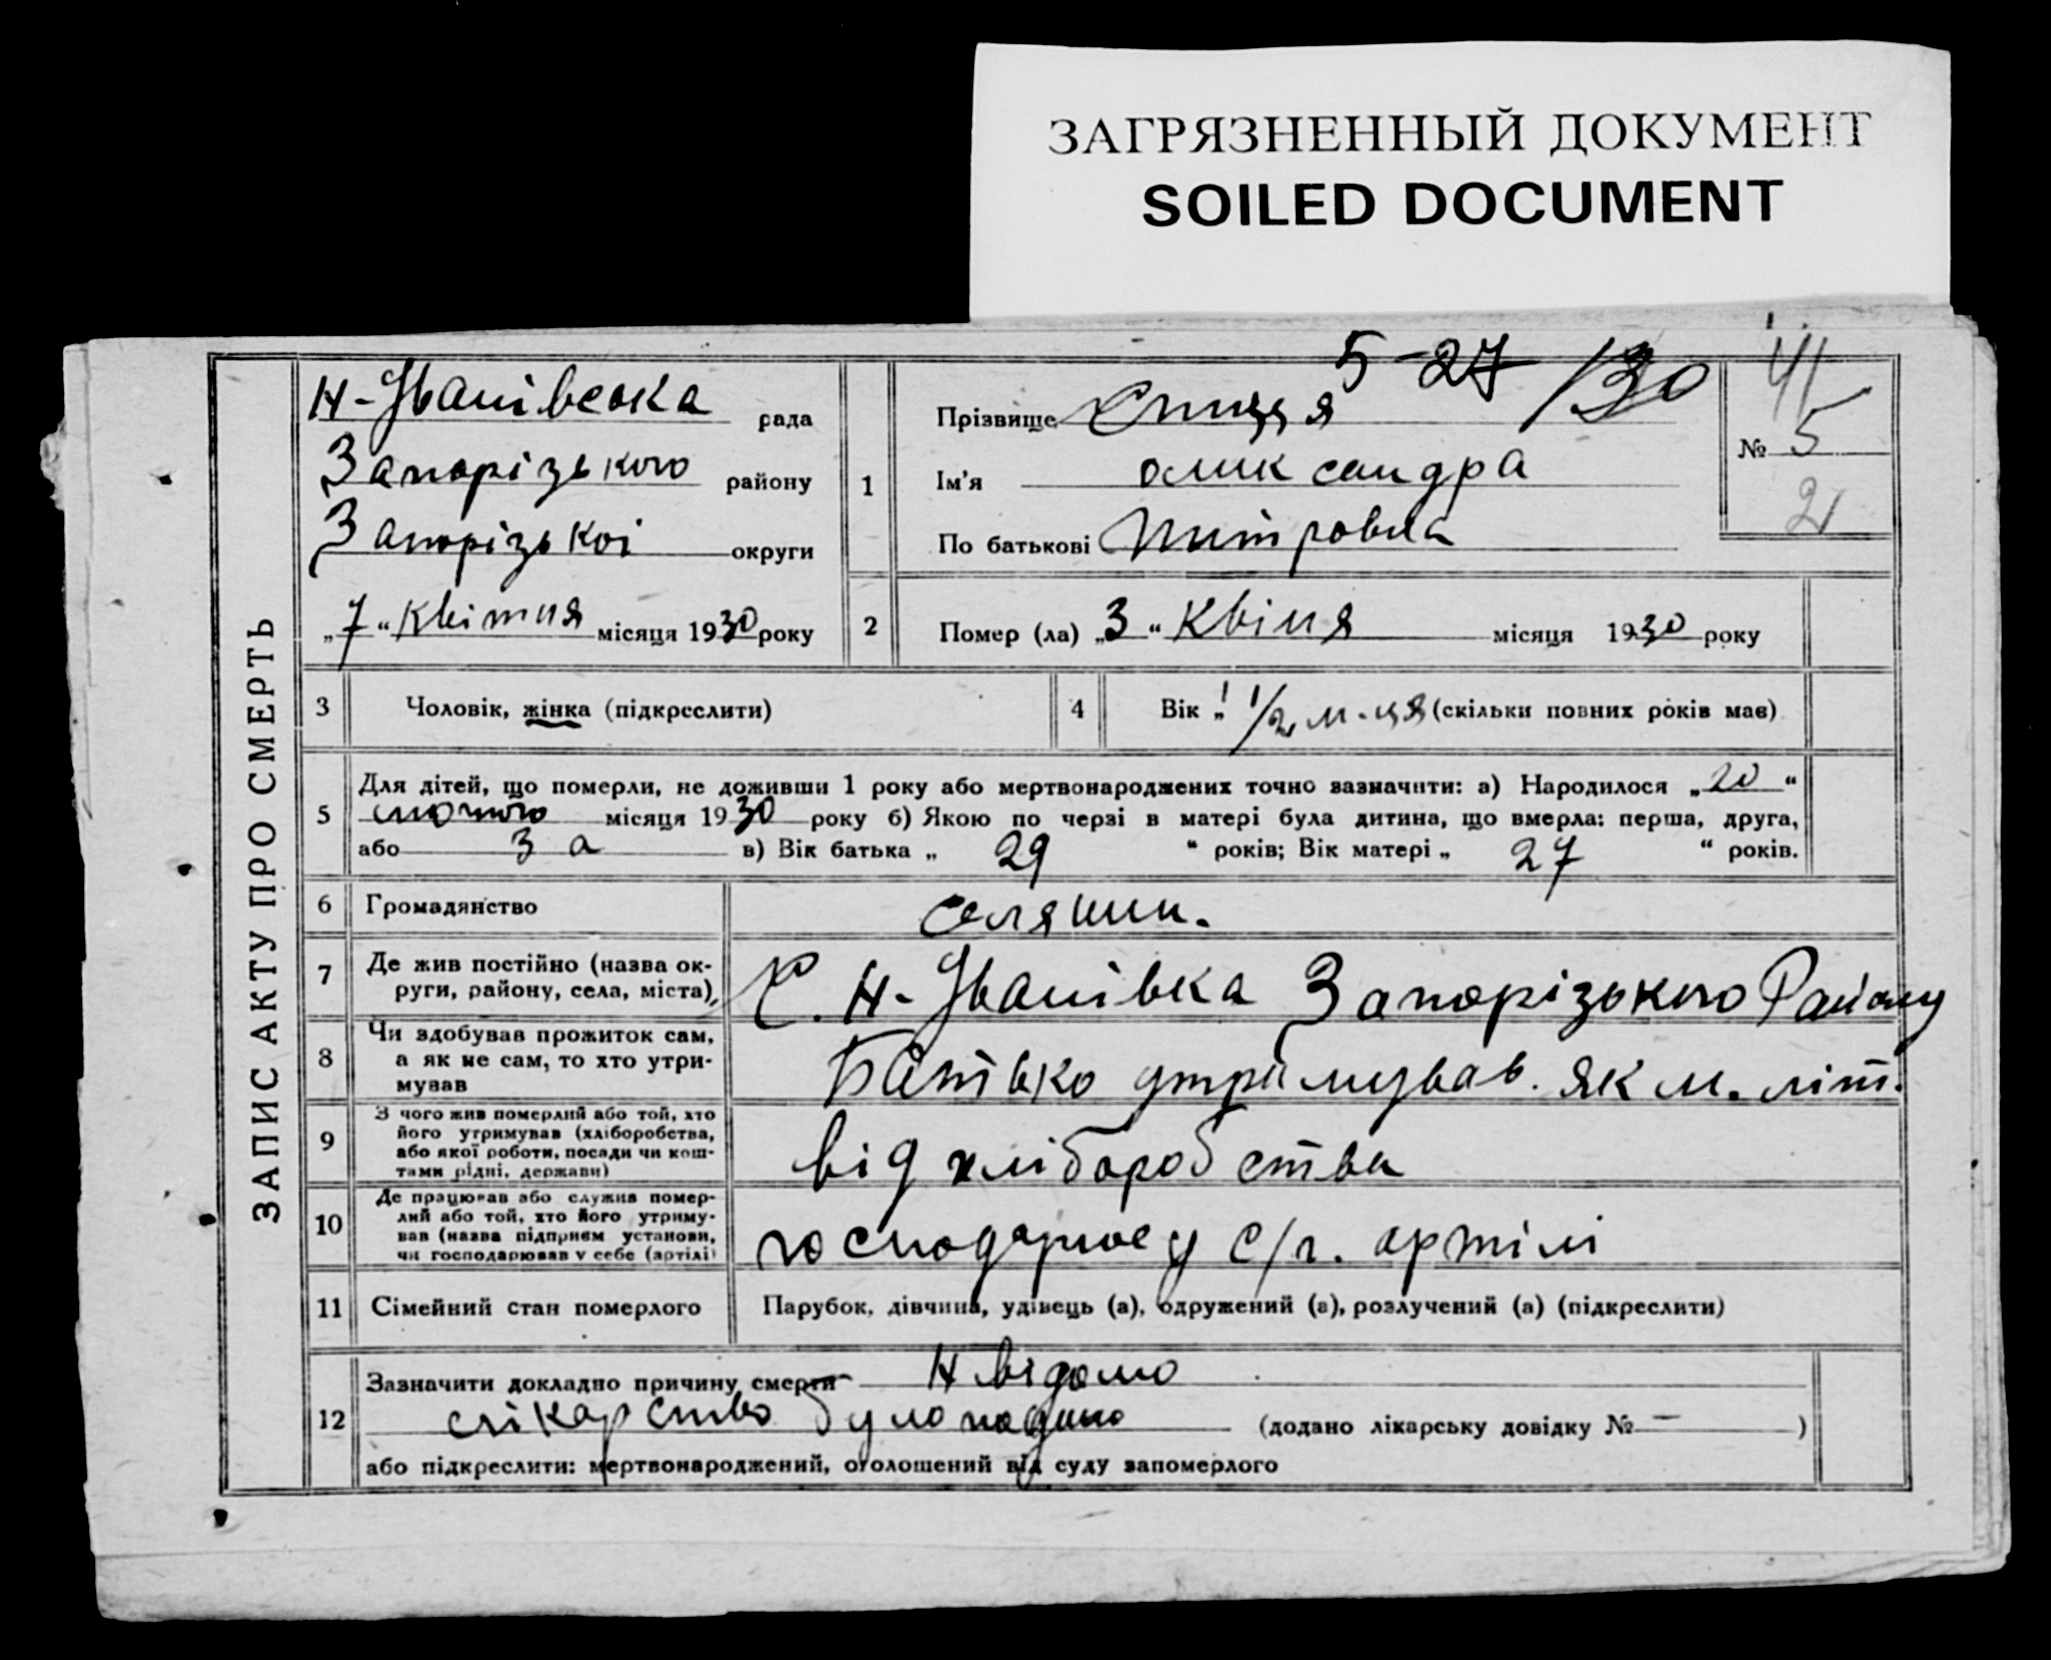 ЗАГРЯЗНЕННЫЙ ДОКУМЕНТ
SOILED DOCUMENT
ЗАПИС АКТУ ПРО СМЕРТЬ
Н-Іванівська рада
Запорізького району
Запорізькоі округи
„7“ квітня місяця 1930 року
5-27/30
1 Прізвище Спиця
Ім'я олик сандра
По батькові Питровна
41
№ 5
2
2 Помер (ла) „3“ Квіня місяця 1930 року
3 Чоловік, жінка (підкреслити)
4 Вік „ 1 1/2 м-ця (скільки повних років має)
5 Для дітей, що померли, не доживши 1 року або мертвонароджених точно зазначити: а) Народилося „20“
лютого місяця 1930 року б) Якою по черзі в матері була дитина, що вмерла: перша, друга,
або 3 а в) Вік батька „ 29 “ років; Вік матері „ 27 “ років.
6 Громадянство селянин.
7 Де жив постійно (назва ок-
руги, району, села, міста)
С. Н-Іванівка Запорізького Району
8 Чи здобував прожиток сам,
а як не сам, то хто утри-
мував
Батько утримував. як м. літ.
9 З чого жив померлий або той, хто
його утримував (хліборобства,
або якої роботи, посади чи кош-
тами рідні, держави)
від хліборобства
10 Де працював або служив помер-
лий або той, хто його утриму-
вав (назва підприєм установи,
чи господарював у себе (артілі)
господарює у с/г. артілі
11 Сімейний стан померлого Парубок, дівчина, удівець (а), одружений (а), розлучений (а) (підкреслити)
12 Зазначити докладно причину смерти Н відомо
лікарство було (додано лікарську довідку № — )
або підкреслити: мертвонароджений, оголошений від суду запомерлого